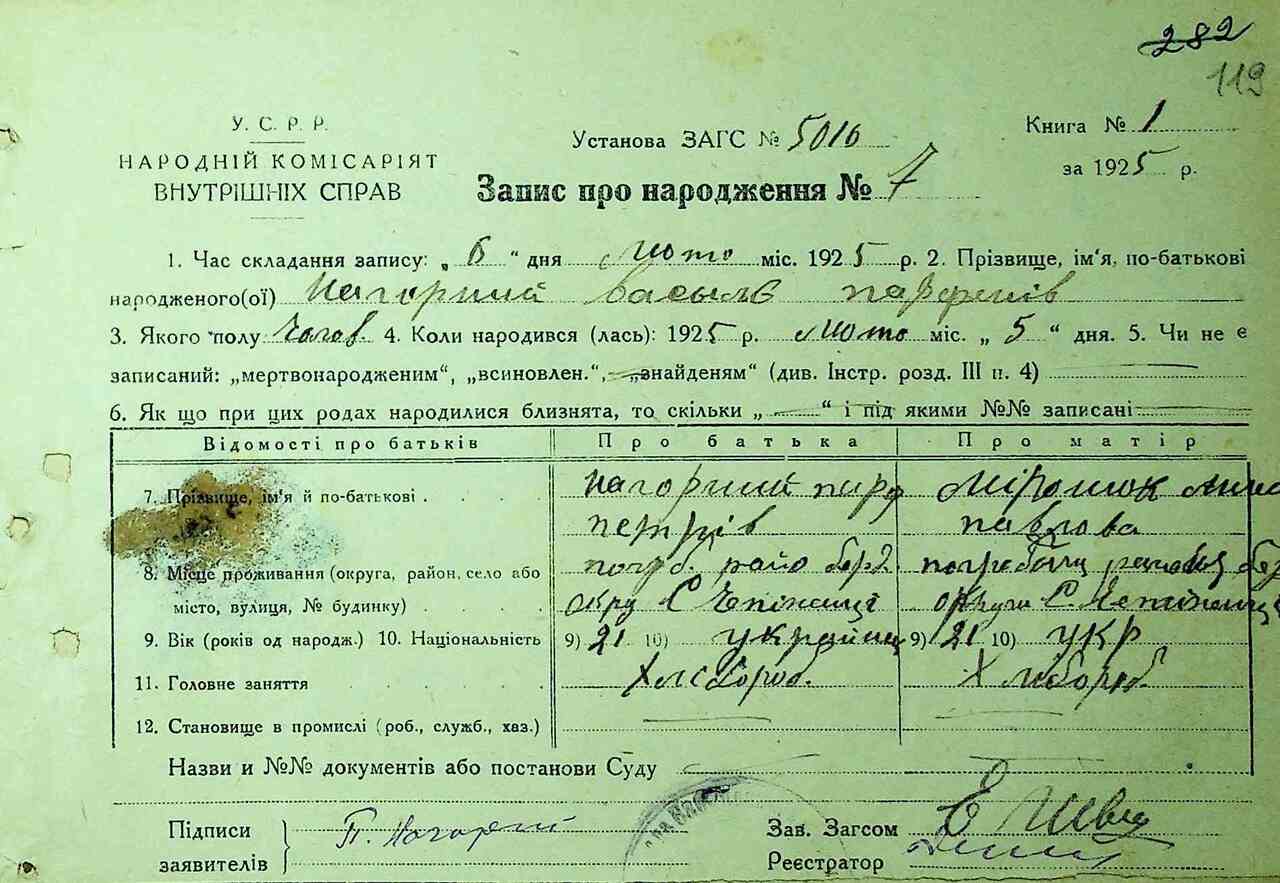 282
119
У. С. Р. Р.
НАРОДНІЙ КОМІСАРІЯТ
ВНУТРІШНІХ СПРАВ
Установа ЗАГС № 5016
Книга № 1
за 1925 р.
Запис про народження № 7
1. Час складання запису: „ 6 “ дня Люто міс. 1925 р. 2. Прізвище, ім'я, по-батькові
народженого(ої) Нагорний Василь Парфенів
3. Якого полу Чолов. 4. Коли народився (лась): 1925 р. Люто міс. „ 5 “ дня. 5. Чи не є
записаний: „мертвонародженим“, „всиновлен.“, „знайденям“ (див. Інстр. розд. III п. 4)
6. Як що при цих родах народилися близнята, то скільки „ “ і під якими №№ записані
Відомості про батьків Про батька Про матір
7. Прізвище, ім'я й по-батькові Нагорний Миронюк
Петрів Павлова
8. Місце проживання (округа, район, село або погр.
місто, вулиця, № будинку) окру С окруи С.
9. Вік (років од народж.) 10. Національність 9) 21 10) українц 9) 21 10) укр
11. Головне заняття Хлібороб. Хлібороб.
12. Становище в промислі (роб., служб., хаз.)
Назви и №№ документів або постанови Суду
Підписи
заявителів
П. Нагорній
Зав. Загсом
Реєстратор